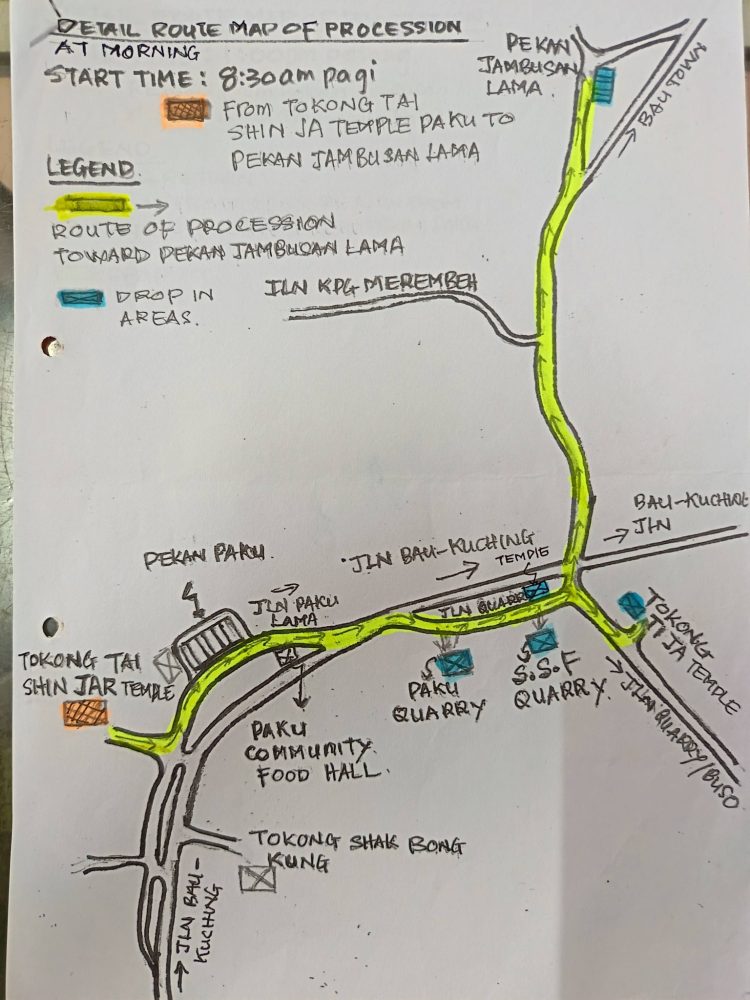 DETAIL ROUTE MAP OF PROCESSION
AT MORNING
START TIME: 8:30am pagi
FROM TOKONG TAI
SHIN JA TEMPLE PAKU TO
PEKAN JAMBUSAN LAMA
LEGEND.
ROUTE OF PROCESSION
TOWARD PEKAN JAMBUSAN LAMA
DROP IN
AREAS.
PEKAN
JAMBUSAN
LAMA.
BAU TOWN
JLN KPG MEREMBEH
BAU-KUCHING
JLN
JLN BAU-KUCHING
TEMPLE
PEKAN PAKU.
JLN PAKU
LAMA
JLN QUARRY
TOKONG
TI JA TEMPLE
TOKONG TAI
SHIN JAR TEMPLE
PAKU
QUARRY
S.S.F
QUARRY.
JLN QUARRY/BUSO
PAKU
COMMUNITY
FOOD HALL.
TOKONG SHAK BONG
KUNG
JLN BAU-
KUCHING